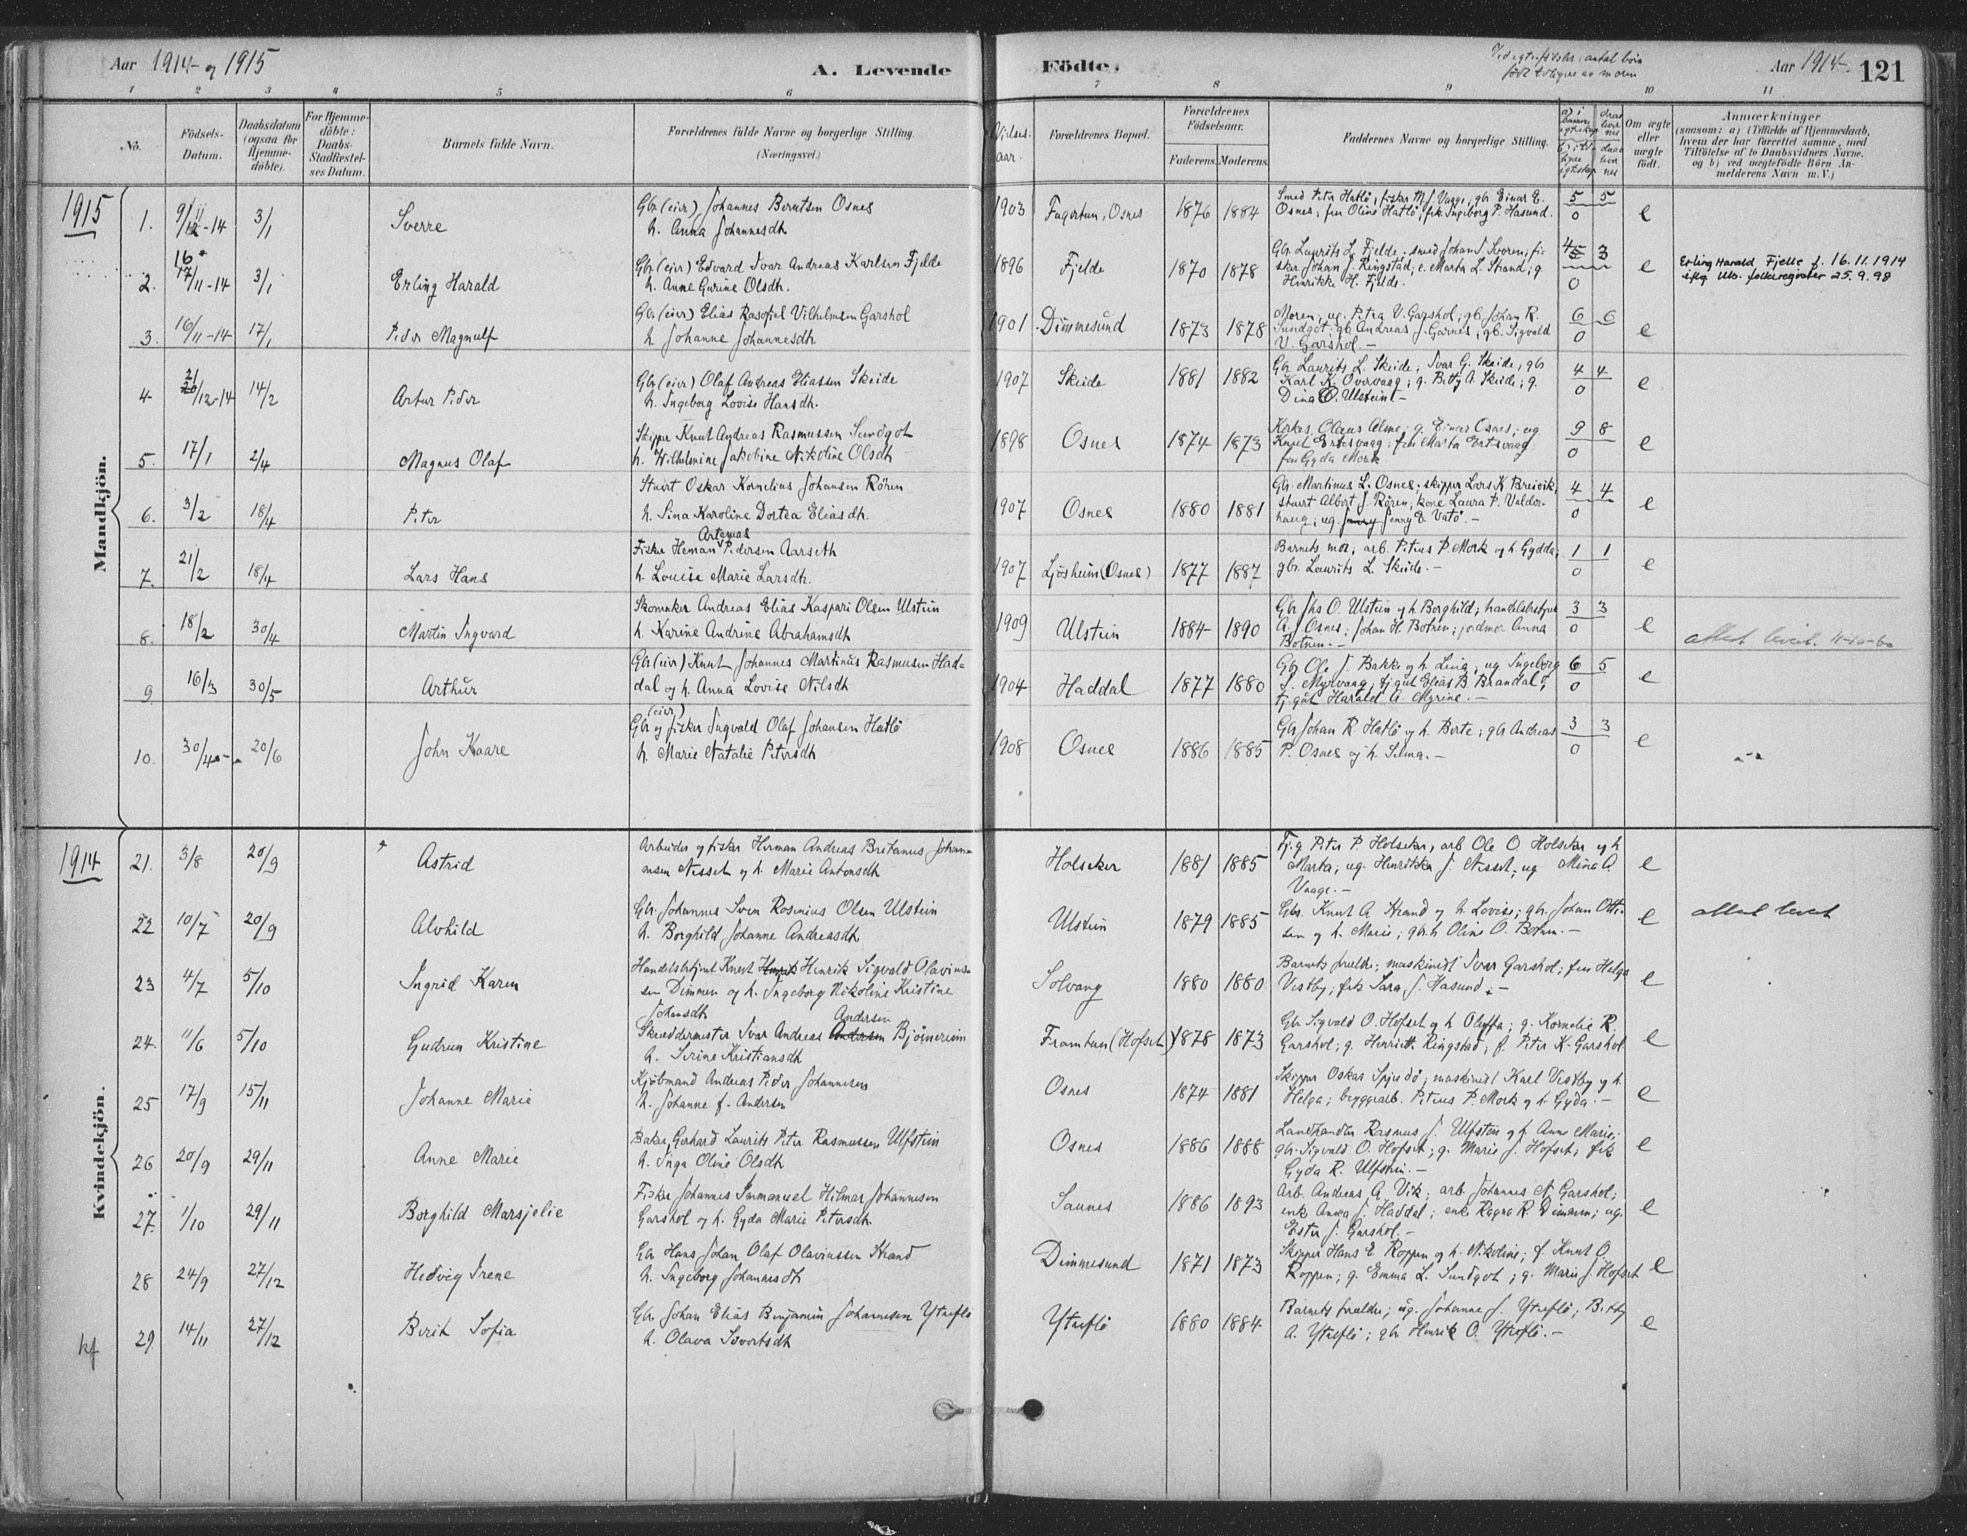 Aar 1914 og 1915 A. Levende
Födte. Aar 1914. 121
1 2 3 4 5 6
7 8 9 10 11
No. Födsels-Datum. Daabsdatum (ogsaa for Hjemmedöbte). For Hjemmedöbte: Daabs-Stadfæstelses Datum. Barnets fulde Navn. Forældrenes fulde Navne og borgerlige Stilling. (Næringsvei.)
Vielsesaar. Forældrenes Bopæl. Forældrenes Födselsaar. Faderens. Moderens. Faddernes Navne og borgerlige Stilling. Om ægte eller uægte födt. Anmærkninger
(saasom: a) i Tilfælde af Hjemmedaab, hvem der har forrettet samme, med Tilföielse af to Daabsvidners Navne, og b) ved uægtefödte Börn Anmelderens Navn m. V.)
1915
Mandkjön.
1. 9/12-14 3/1 Sverre Gbr (eier) Johannes Berntsen Osnes
h. Anna Johannesdh
1903 Fagertun, Osnes 1876 1884 Smed Peter Hatlö, fisker M. J. Vaage, gbr Einar E.
Osnes, fru Oline Hatlö, frk Ingeborg P. Hasund. 5 5 0 e
2. 16 17/11-14 3/1 Erling Harald Gbr (eier) Edvard Ivar Andreas Karlsen Fjelde
h. Anne Gurine Olsdh.
1896 Fjelde 1870 1878 Gbr. Laurits L. Fjelde; smed Johan Sveren; fi-
sker Johan J. Ringstad, e. Marta L. Strand; g.
Henrikke H. Fjelde. 4 3 0 e
Erling Harald Fjelle f. 16.11.1914
iflg Uls. folkeregister 25.9.98
3. 16/11-14 17/1 Peder Magnulf Gbr. (eier) Elias Rasofiel Vilhelmsen Garshol
h. Johanne Johannesdh
1901 Dimmesund 1873 1878 Moren; ug. Petra V. Garshol; gb. Johan R.
Sundgot; gb Andreas J. Garnes; gb. Sigvald
V. Garshol.- 6 6 0 e
4 21/12-14 14/2 Artur Peder Gbr (eier) Olaf Andreas Eliassen Skeide
h. Ingeborg Lovise Hansdh.
1907 Skeide 1881 1882 Gbr Laurits L. Skeide; Ivar G. Skeide; gbr
Karl K. Overvaag; g. Betty A. Skeide; g.
Dina O. Ulstein.- 4 4 0 e
5. 17/1 2/4 Magnus Olaf Skipper Knut Andreas Rasmussen Sundgot
h. Wilhelmine Jakobine Nikoline Olsdh
1898 Osnes 1874 1873 Olaus Aelme; g. Einar Osnes; ug
Knut Ertesvaag; frk Marta Ertesvaag
fru Gyda Mork 9 8 0 e
6. 3/2 18/4 Peter Stuert Oskar Kornelius Johansen Rören
h. Sina Karoline Dortea Eliasdh.
1907 Osnes 1880 1881 Gbr. Martinus L. Osnes; skipper Lars K. Breivik,
stuert Albert J. Rören, kone Laura P. Valder-
haug; ug. Jenny E Vatö.- 4 4 0 e
7. 21/2 18/4 Lars Hans Artemas
Fisker Heman Pedersen Aarseth
h. Louise Marie Larsdh.
1907 Ljösheim (Osnes) 1877 1887 Barnets mor, arb. Peteus P. Mork og h. Gydda,
gbr. Laurits L. Skeide.- 1 1 0 e
8. 18/2 30/4 Martin Ingvard Skomaker Andreas Elias Kaspari Olsen Ulstein
h. Karine Andrine Abrahamsdh
1909 Ulstein 1884 1890 Gbr Jhs O. Ulstein og h. Borghild; handelsbestyrer
A. J. Osnes; Johan H. Botnen; jordmor Anna
Botnen.- 3 3 0 e
attest levert. 11-10-60
9. 16/3 30/5 Arthur Gbr (eier) Knut Johannes Martinus Rasmussen Had-
dal og h. Anna Lovise Nilsdh
1904 Haddal 1877 1880 Gbr Ole J. Bakke og h. Lina; ug Ingeborg
J. Myrvaag; fj. gut Elias B. Brandal og
fj. gut Harald A. Myrine.- 6 5 0 e
10. 30/4 20/6 John Kaare (eier)
Gbr og fisker Ingvald Olaf Johansen Hatlö
h. Marie Natalie Petersdh
1908 Osnes 1886 1885 Gbr Johan R. Hatlö og h. Berte; gbr Andreas
P. Osnes og h. Selma.- 3 3 0 e
1914
Kvindekjön.
21. 3/8 20/9 Astrid Arbeider og fisker Herman Andreas Bretanus Johan-
nsen Nesset og h. Marie Antonsdh
Holseker 1881 1885 Fj. g Peter P. Holseker, arb Ole O Holseker og h
Marta; ug. Henrikke J. Nesset, ug Mina A.
Vaage.- e
22 10/7 20/9 Alvhild Gbr. Johannes Sven Rosenius Olsen Ulstein
h. Borghild Johanne Andreasdh
Ulstein 1879 1885 Gbr. Knut A Strand og h. Lovise; gbr. Johan Otte-
sen og h. Marie; gbr.h Oline O. Botnen.- e attest levert
23 4/7 5/10 Ingrid Karen Handelsbetjent Knut Henrik Sigvald Olavius-
sen Dimmen og h. Ingeborg Nikoline Kristine
Johansdh
Solvang 1880 1880 Barnets foreldre; maskinist Ivar Garshol; fru Helga
Vestby; frk Sara J. Hasund.- e
24. 11/6 5/10 Gudrun Kristine Andersen
Skreddermester Ivar Andreas Andersen Bjørnereim
h. Serine Kristiansdh
Framtun (Hofset) 1878 1873 Gbr Sigvald O. Hofset og h Oluffa; g. Kornelie R.
Garshol; g. Henriette Ringstad; f. Peter K. Garshol e
25 17/9 15/11 Johanne Marie Kjöbmand Andreas Peder Johannesen
h. Johanne f. Andersen
Osnes 1874 1881 Skipper Oskar Spjudö; maskinist Karl Vestby og h.
Helga; bryggearb. Peteus P. Mork og h. Gyda.- e
26 20/9 29/11 Anne Marie Baker Gerhard Laurits Peter Rasmussen Ulfstein
h. Inga Oline Olsdh
Osnes 1886 1888 Landhandler Rasmus J. Ulfsten og h Anne Marie;
gbr. Sigvald O. Hofset; g. Marie J. Hofset; frk
Gyda R. Ulfstein.- e
27. 1/10 29/11 Borghild Marsjelie Fisker Johannes Immanuel Hilmar Johannesen
Garshol og h. Gyda Marie Petersdh.
Saunes 1886 1893 Arb. Andreas A. Vik; arb Johannes N Garshol;
enk Anna J. Haddal; enk Ragna R. Dimmen; ug.
Ester J. Garshol.- e
28 24/9 27/12 Hedvig Irene Gbr Hans Johan Olaf Olaviussen Strand
h. Ingeborg Johannesdh
Dimmesund 1871 1873 Skipper Hans E. Roppen og h. Nikoline; f. Knut O.
Roppen; g. Emma L. Sundgot; g. Marie J Hofset e
29. 14/11 27/12 Berit Sofia Gbr. Johan Elias Benjamin Johannesen Ytreflö
h. Olava Sivertsdh
Ytreflö 1880 1884 Barnets foreldre; ug. Johanne J. Ytreflö; Betty
A. Ytreflö; gbr Henrik O. Ytreflö.- e
kf